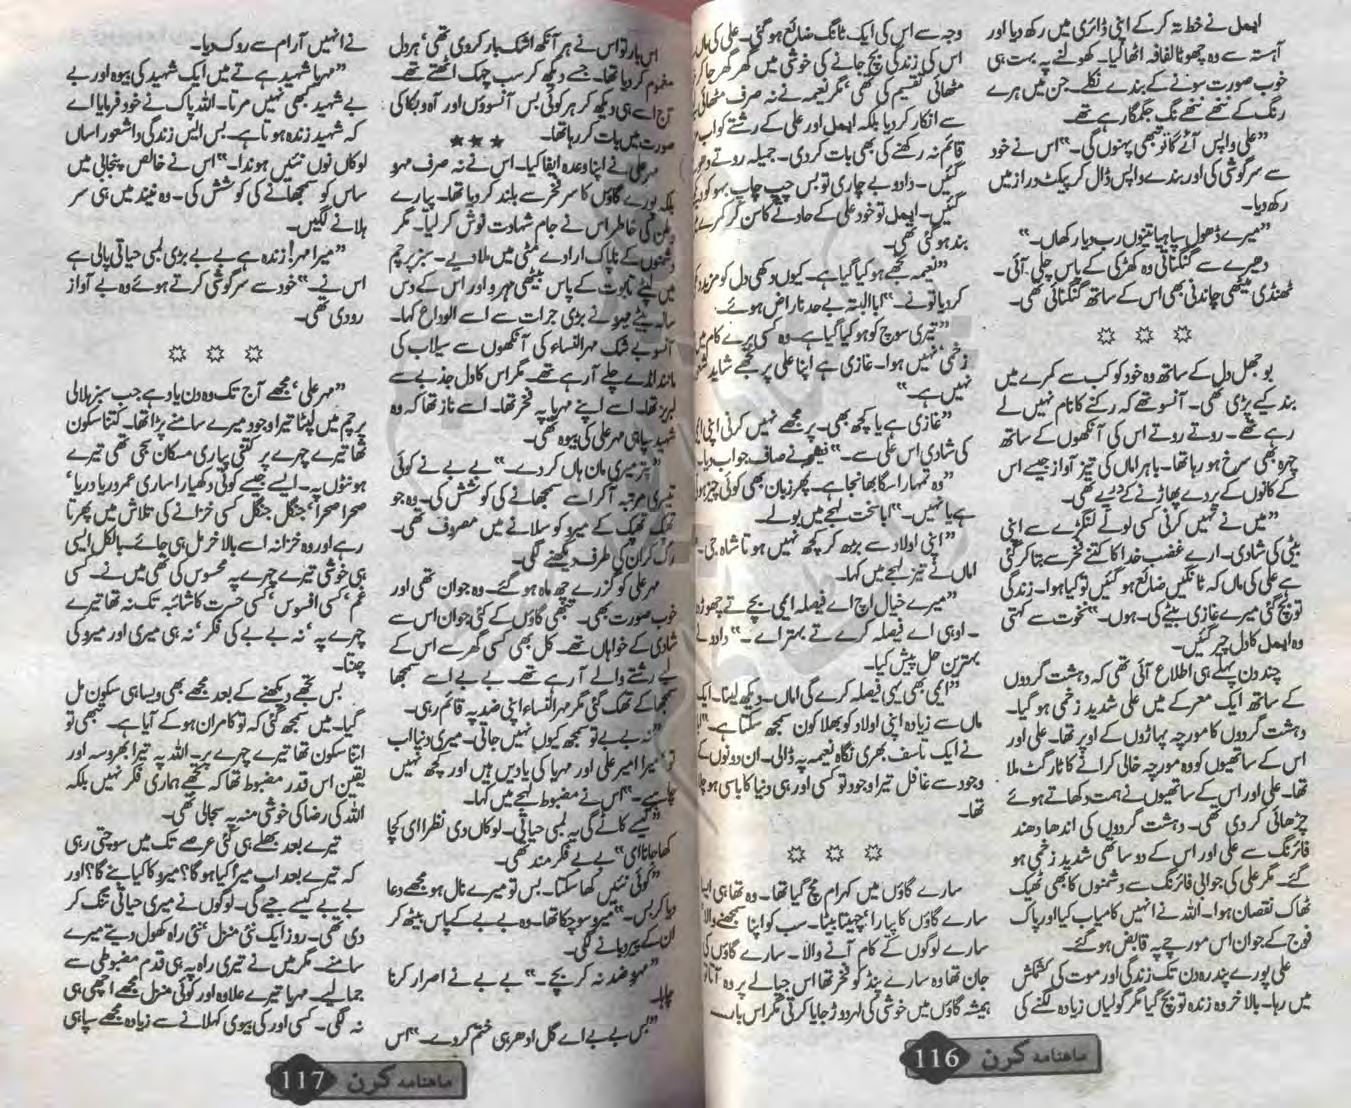 ایمل نے خط تہ کرکے اپنی ڈائری میں رکھ دیا اور
آہستہ سے وہ چھوٹا لفافہ اٹھا لیا۔ کھولنے پہ بہت ہی
خوب صورت سونے کے بندے نکلے۔ جن میں ہرے
رنگ کے ننھے ننھے نگ جگمگا رہے تھے۔
”علی واپس آئے گا تو تبھی پہنوں گی۔“ اس نے خود
سے سرگوشی کی اور بندے واپس ڈال کر پیکٹ دراز میں
رکھ دیا۔
”میرے ڈھول سپاہیا تینوں رب دیا رکھاں۔“
دھیرے سے گنگناتی وہ کھڑکی کے پاس چلی آئی۔
ٹھنڈی میٹھی چاندنی بھی اس کے ساتھ گنگنائی تھی۔
☼ ☼ ☼
بوجھل دل کے ساتھ وہ خود کو کب سے کمرے میں
بند کیے پڑی تھی۔ آنسو تھے کہ رکنے کا نام نہیں لے
رہے تھے۔ روتے روتے اس کی آنکھوں کے ساتھ
چہرہ بھی سرخ ہو رہا تھا۔ باہر اماں کی تیز آواز جیسے اس
کے کانوں کے پردے پھاڑنے کے درپے تھی۔
”میں نے نہیں کرنی کسی لولے لنگڑے سے اپنی
بیٹی کی شادی۔ ارے غضب خدا کا کتنے فخر سے بتا کر گئی
ہے علی کی ماں کہ ٹانگیں ضائع ہو گئیں تو کیا ہوا۔ زندگی
تو بچ گئی میرے غازی بیٹے کی۔ ہوں۔“ نخوت سے کہتی
وہ ایمل کا دل چیر گئیں۔
چند دن پہلے ہی اطلاع آئی تھی کہ دہشت گردوں
کے ساتھ ایک معرکے میں علی شدید زخمی ہو گیا۔
دہشت گردوں کا مورچہ پہاڑوں کے اوپر تھا۔ علی اور
اس کے ساتھیوں کو وہ مورچہ خالی کرانے کا ٹارگٹ ملا
تھا۔ علی اور اس کے ساتھیوں نے ہمت دکھاتے ہوئے
چڑھائی کر دی تھی۔ دہشت گردوں کی اندھا دھند
فائرنگ سے علی اور اس کے دو ساتھی شدید زخمی ہو
گئے۔ مگر علی کی جوابی فائرنگ سے دشمنوں کا بھی ٹھیک
ٹھاک نقصان ہوا۔ اللہ نے انہیں کامیاب کیا اور پاک
فوج کے جوان اس مورچے پہ قابض ہو گئے۔
علی پورے پندرہ دن تک زندگی اور موت کی کشمکش
میں رہا۔ بالآخر وہ زندہ تو بچ گیا مگر گولیاں زیادہ لگنے کی
وجہ سے اس کی ایک ٹانگ ضائع ہو گئی۔ علی کی ماں
اس کی زندگی بچ جانے کی خوشی میں گھر گھر جا کر
مٹھائی تقسیم کی تھی، مگر نعیمہ نے نہ صرف مٹھائی
سے انکار کر دیا بلکہ ایمل اور علی کے رشتے کو اب
قائم نہ رکھنے کی بھی بات کر دی۔ جمیلہ روتے دھو
گئیں۔ دادو بے چاری تو بس چپ چاپ بہو کو دیکھ
گئیں۔ ایمل تو خود علی کے حادثے کا سن کر کمرے
بند ہو گئی تھی۔
”نعیمہ تجھے ہو کیا گیا ہے۔ کیوں دکھی دل کو مزید
کر دیا تو نے۔“ ابا البتہ بے حد ناراض ہوئے۔
”تیری سوچ کو ہو کیا گیا ہے۔ وہ کسی برے کام میں
زخمی نہیں ہوا۔ غازی ہے اپنا علی پر تجھے شاید
نہیں ہے۔“
”غازی ہے یا کچھ بھی۔ پر مجھے نہیں کرنی اپنی
کی شادی اس علی سے۔“ نعیمہ نے صاف جواب دیا۔
”وہ تمہارا سگا بھانجا ہے۔ پھر زبان بھی کوئی چیز ہوتی
ہے یا نہیں۔“ ابا سخت لہجے میں بولے۔
”اپنی اولاد سے بڑھ کر کچھ نہیں ہوتا شاہ جی۔“
اماں نے تیز لہجے میں کہا۔
”میرے خیال اچ اے فیصلہ ایمی بچے تے چھوڑ
۔ اوہی اے فیصلہ کرے تے بہتر اے۔“ دادو نے
بہترین حل پیش کیا۔
”ایمی بھی یہی فیصلہ کرے گی اماں۔ دیکھ لینا۔ ایک
ماں سے زیادہ اپنی اولاد کو بھلا کون سمجھ سکتا ہے۔“
نے ایک تاسف بھری نگاہ نعیمہ پہ ڈالی۔ ان دونوں کے
وجود سے غافل تیرا وجود تو کسی اور ہی دنیا کا باسی ہو چلا
تھا۔
☼ ☼ ☼
سارے گاؤں میں کہرام مچ گیا تھا۔ وہ تھا ہی ایسا
سارے گاؤں کا پیارا، چہیتا بیٹا۔ سب کو اپنا سمجھنے والا
سارے لوگوں کے کام آنے والا۔ سارے گاؤں کی
جان تھا وہ سارے پنڈ کو فخر تھا اس جیالے پر وہ آتا تو
ہمیشہ گاؤں میں خوشی کی لہر دوڑ جایا کرتی مگر اس بار۔۔۔
ماہنامہ کرن 116
اس بار تو اس نے ہر آنکھ اشک بار کر دی تھی، ہر دل
مغموم کر دیا تھا۔ جسے دیکھ کر سب چہک اٹھتے تھے۔
آج اسے ہی دیکھ کر ہر کوئی بس آنسوؤں اور آہ و بکا کی
صورت میں بات کر رہا تھا۔
★ ★ ★
مہر علی نے اپنا وعدہ ایفا کیا۔ اس نے نہ صرف مہو
بلکہ پورے گاؤں کا سر فخر سے بلند کر دیا تھا۔ پیارے
وطن کی خاطر اس نے جام شہادت نوش کر لیا۔ مگر
دشمنوں کے ناپاک ارادے مٹی میں ملا دیے۔ سبز پرچم
میں لپٹے تابوت کے پاس بیٹھی مہرو اور اس کے دس
سالہ بیٹے میرو نے بڑی جرات سے اسے الوداع کہا۔
آنسو بے شک مہر النساء کی آنکھوں سے سیلاب کی
مانند امڈے چلے آ رہے تھے۔ مگر اس کا دل جذبے سے
لبریز تھا۔ اسے اپنے مہریا پہ فخر تھا۔ اسے ناز تھا کہ وہ
شہید سپاہی مہر علی کی بیوہ تھی۔
”پتر میری مان ہاں کر دے۔“ بے بے نے کوئی
تیسری مرتبہ آ کر اسے سمجھانے کی کوشش کی۔ وہ جو
تھپک تھپک کے میرو کو سلانے میں مصروف تھی۔
رک کر ان کی طرف دیکھنے لگی۔
مہر علی کو گزرے چھ ماہ ہو گئے۔ وہ جوان تھی اور
خوب صورت بھی۔ تبھی گاؤں کے کئی جوان اس سے
شادی کے خواہاں تھے۔ کل بھی کسی گھر سے اس کے
لیے رشتے والے آ رہے تھے۔ بے بے اسے سمجھا
سمجھا کے تھک گئی مگر مہر النساء اپنی ضد پہ قائم رہی۔
”نہ بے بے تو سمجھ کیوں نہیں جاتی۔ میری دنیا اب
تو میرا امیر علی اور مہریا کی یادیں ہیں اور کچھ نہیں
چاہیے۔“ اس نے مضبوط لہجے میں کہا۔
”کیسے کاٹے گی یہ لمبی حیاتی۔ لوکاں دی نظراں ای کچا
کھا جاندا ای“ بے بے فکر مند تھی۔
”کوئی نئیں کھا سکتا۔ بس تو میرے نال ہو مجھے دعا
دیا کر بس۔“ میرو سو چکا تھا۔ وہ بے بے کے پاس بیٹھ کر
ان کے پیر دبانے لگی۔
”مہو ضد نہ کر بچے۔“ بے بے نے اصرار کرنا
چاہا۔
”بس بے بے اے گل ادھر ہی ختم کر دے۔“ اس
نے انہیں آرام سے روک دیا۔
”مہریا شہید ہے تے میں ایک شہید کی بیوہ اور بے
بے شہید کبھی نہیں مرتا۔ اللہ پاک نے خود فرمایا اے
کہ شہید زندہ ہوتا ہے۔ بس ایس زندگی دا شعور اساں
لوکاں نوں نئیں ہوندا۔“ اس نے خالص پنجابی میں
ساس کو سمجھانے کی کوشش کی۔ وہ نیند میں ہی سر
ہلانے لگیں۔
”میرا مہر! زندہ ہے بے بے بڑی لمبی حیاتی پالی ہے
اس نے۔“ خود سے سرگوشی کرتے ہوئے وہ بے آواز
رو دی تھی۔
☼ ☼ ☼
”مہر علی، مجھے آج تک وہ دن یاد ہے جب سبز ہلالی
پرچم میں لپٹا تیرا وجود میرے سامنے پڑا تھا۔ کتنا سکون
تھا تیرے چہرے پر کتنی پیاری مسکان سجی تھی تیرے
ہونٹوں پہ۔ ایسے جیسے کوئی دکھیارا ساری عمر دریا دریا،
صحرا صحرا، جنگل جنگل کسی خزانے کی تلاش میں پھرتا
رہے اور وہ خزانہ اسے بالآخر مل ہی جائے۔ بالکل ایسی
ہی خوشی تیرے چہرے پہ محسوس کی تھی میں نے۔ کسی
غم، کسی افسوس، کسی حسرت کا شائبہ تک نہ تھا تیرے
چہرے پہ، نہ بے بے کی فکر، نہ ہی میری اور میرو کی
چنتا۔
بس تجھے دیکھنے کے بعد مجھے بھی ویسا ہی سکون مل
گیا۔ میں سمجھ گئی کہ تو کامران ہو کے آیا ہے۔ تبھی تو
اتنا سکون تھا تیرے چہرے پر۔ اللہ پہ تیرا بھروسہ اور
یقین اس قدر مضبوط تھا کہ تجھے ہماری فکر نہیں بلکہ
اللہ کی رضا کی خوشی منہ پہ سجالی تھی۔
تیرے بعد بھلے ہی کئی عرصے تک میں سوچتی رہی
کہ تیرے بعد اب میرا کیا ہو گا؟ میرو کا کیا بنے گا؟ اور
بے بے کیسے جیے گی۔ لوگوں نے میری حیاتی تنگ کر
دی تھی۔ روز ایک نئی منزل، نئی راہ کھول دیتے میرے
سامنے۔ مگر میں نے تیری راہ پہ ہی قدم مضبوطی سے
جما لیے۔ مہریا تیرے علاوہ اور کوئی منزل مجھے اچھی ہی
نہ لگی۔ کسی اور کی بیوی کہلانے سے زیادہ مجھے سپاہی
ماہنامہ کرن 117